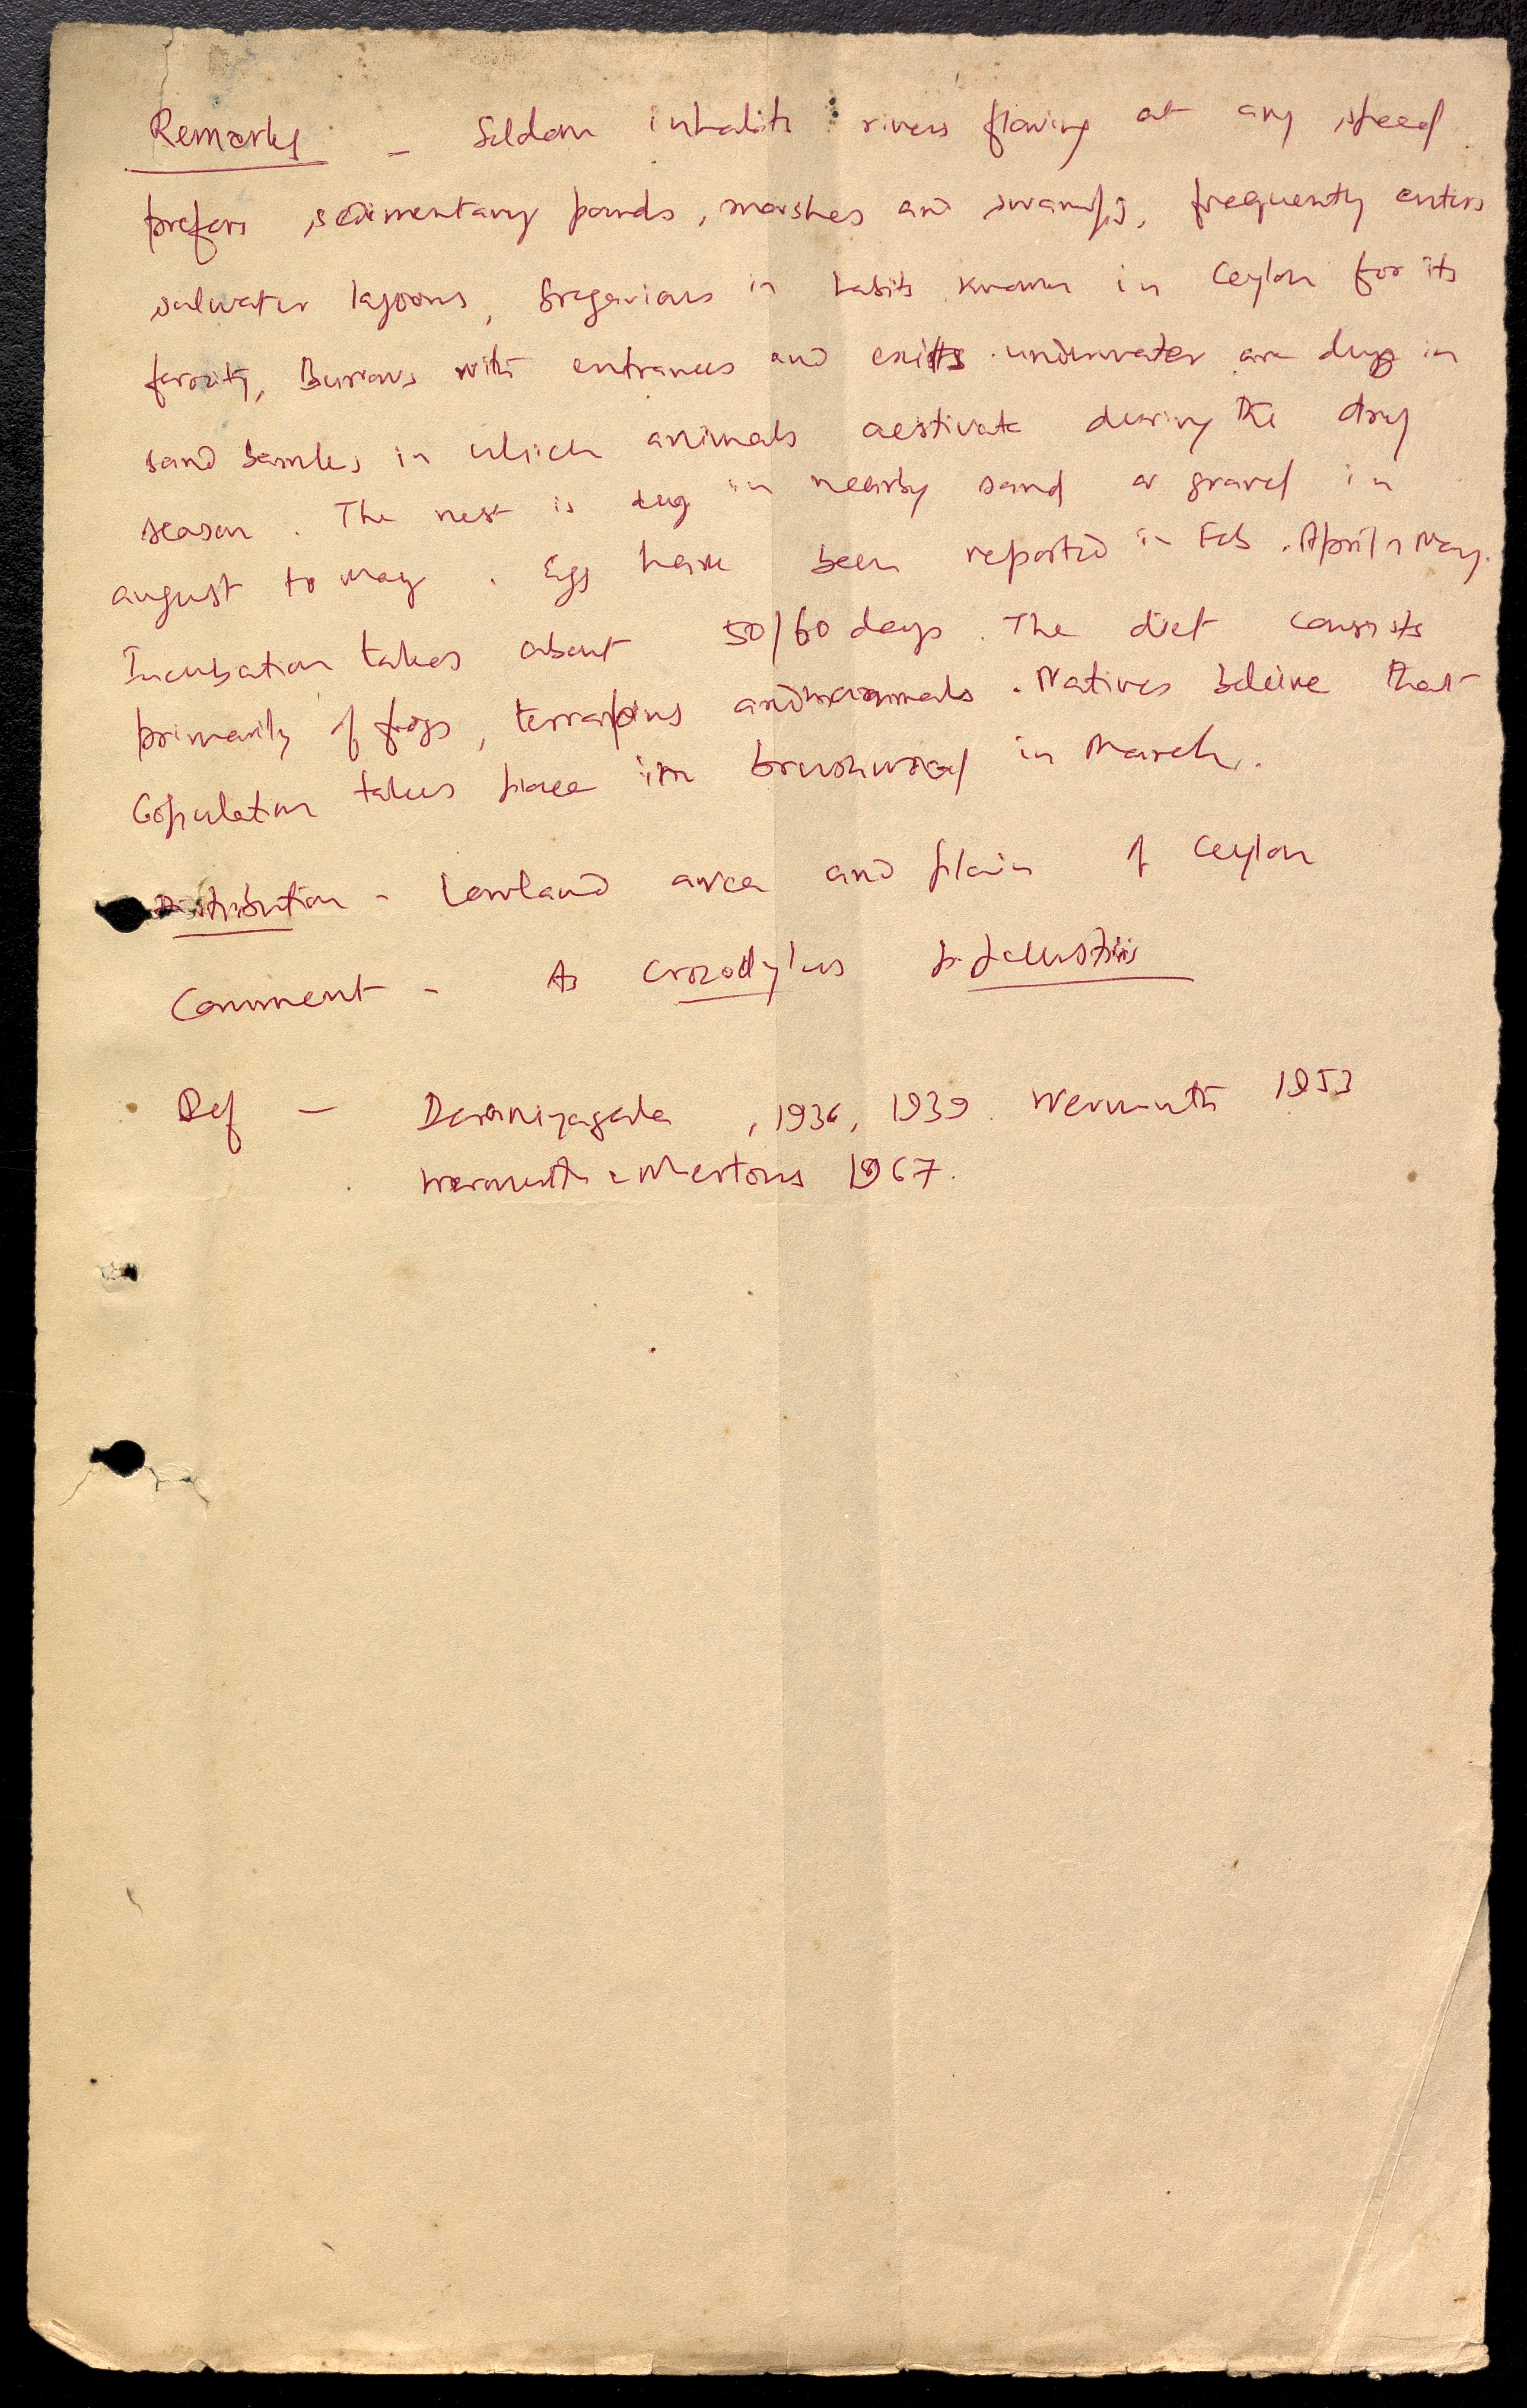 Remarks - Seldom inhabits rivers flowing at any speed
prefers sedimentary ponds, marshes and swamps, frequently enters
salwater lagoons, Gregarious in habits known in Ceylon for its
ferocity, Burrows with entrances and exits underwater are dug in
sand banks, in which animals aestivate during the dry
season. The nest is dug in nearby sand or gravel in
august to may. Eggs have been reported in Feb. April, May.
Incubation takes about 50/60 days. The diet consists
primarily of frogs, terrapins and mammals. Natives beleive that
Copulation takes place in brushwood in March.
Distribution - Lowland area and plain of Ceylon
Comment - As Crocodylus p. palustris
Ref - Deraniyagala, 1936, 1939. Wermuth 1953
Wermuth & Mertens 1967.